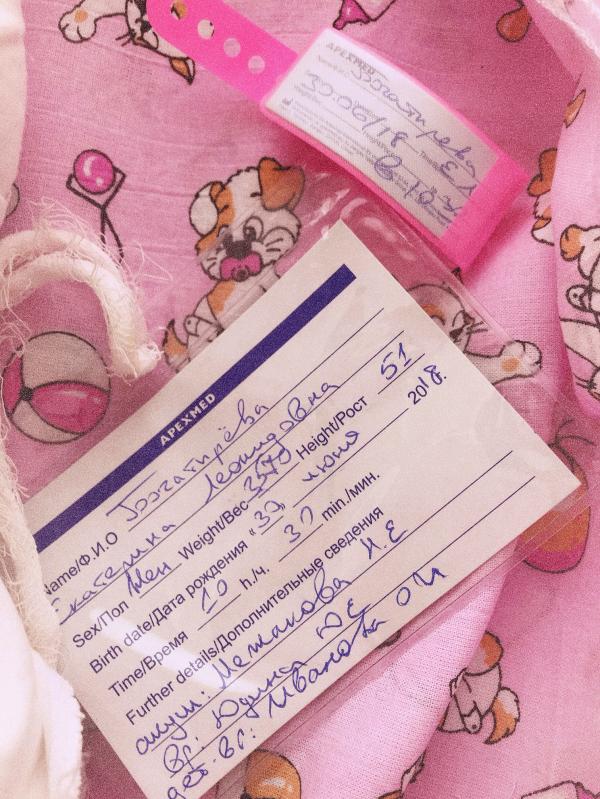 APEXMED
Богатирёва
30.06/18
APEXMED
Name/Ф.И.О Богатирёва
Екатерина Леонидовна
Sex/Пол жен Weight/Вес 3570 Height/Рост 51
Birth date/Дата рождения «30 июня 2018.
Time/Время 10 h./ч. 30 min./мин.
Further details/Дополнительные сведения
акуш: Н.Е
вр: Юдина Ю Е
дет.вр: Иванова О И